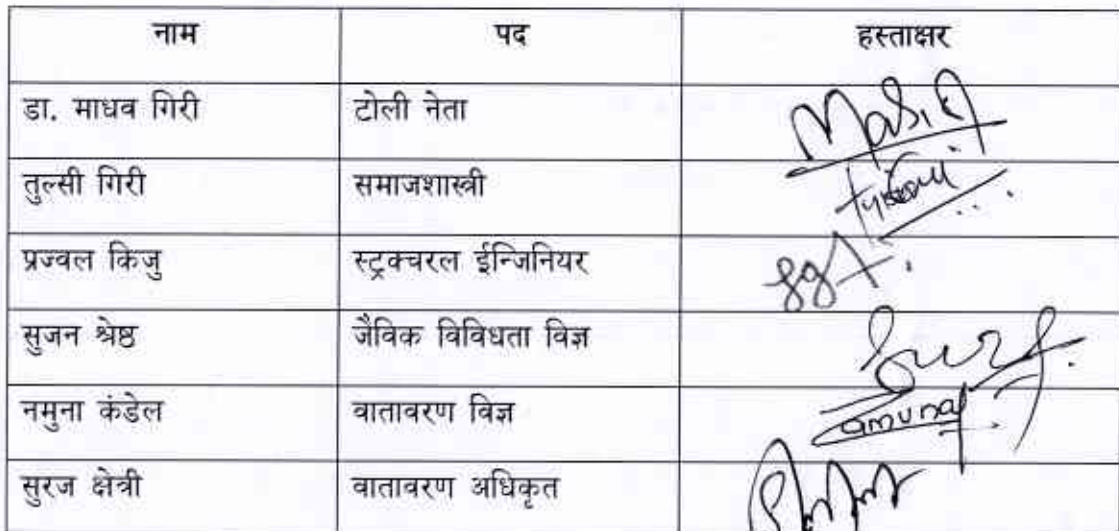 नाम पद हस्ताक्षर
डा. माधव गिरी टोली नेता
तुल्सी गिरी समाजशास्त्री
प्रज्वल किजु स्ट्रक्चरल ईन्जिनियर
सुजन श्रेष्ठ जैविक विविधता विज्ञ
नमुना कंडेल वातावरण विज्ञ
सुरज क्षेत्री वातावरण अधिकृत